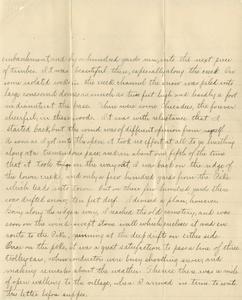 embankment and by a hundred yards run, into the next piece
of timber. It was beautiful there, especially along the creek. On
some isolated rock in the creek channel the snow was piled into
large cones and domes as much as two feet high and hardly a foot
in diameter at the base. There were some Chicadees, the forever
cheerful, in those woods. It was with reluctance that I
started back, but the wind was of different opinion from myself.
As soon as I got into the open, it took no effort at all to go hustling
along at a tremendous pace and in about one fifth of the time
that it took to go on the way out, I was back on the edge of
the lower creek, and only a few hundred yards from the Pike
which leads into town. But on those few hundred yards there
was drifted snow, ten feet deep. I devised a plan, however.
Going along the edge a way, I reached the old cemetery, and was
soon on the wind-swept stone wall which pursued it was an easy
route to the Pike, running at the deep drift on either side.
Once on the pike, it was a great satisfaction to pass a line of three
trolley cars, whose conductors were busy shoveling snow, and
making remarks about the weather. Thence there was a mile
of open walking to the village, where I arrived in time to write
this letter before supper.